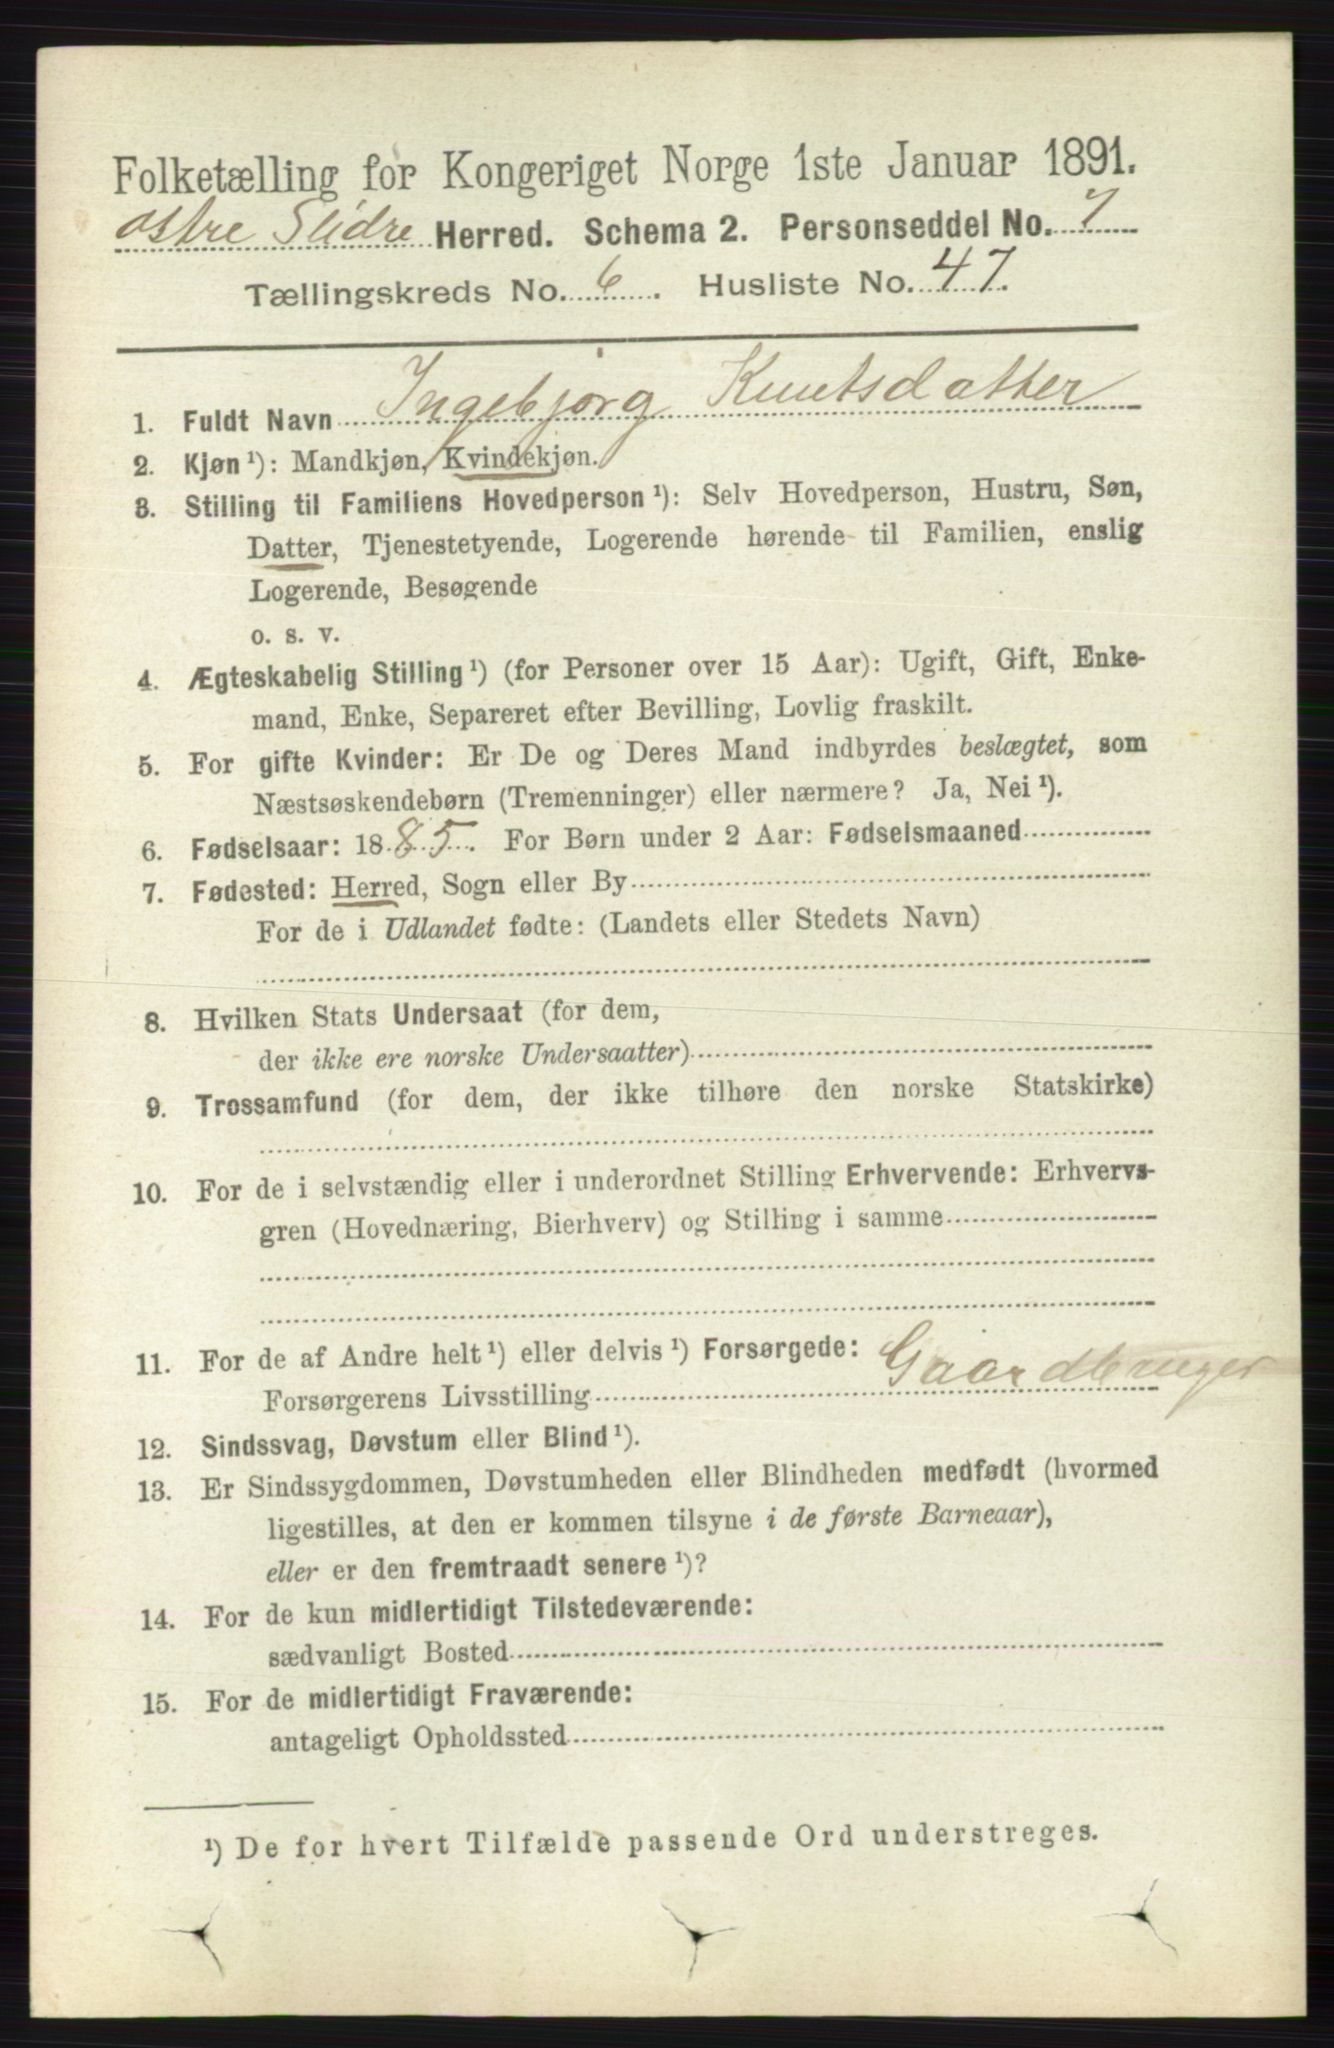 Folketælling for Kongeriget Norge 1ste Januar 1891.
Østre Slidre Herred. Schema 2. Personseddel No. 7
Tællingskreds No. 6. Husliste No. 47.
1. Fuldt Navn Ingebjørg Knutsdatter
2. Kjøn ¹): Mandkjøn, Kvindekjøn.
3. Stilling til Familiens Hovedperson ¹): Selv Hovedperson, Hustru, Søn,
Datter, Tjenestetyende, Logerende hørende til Familien, enslig
Logerende, Besøgende
o. s. v.
4. Ægteskabelig Stilling ¹) (for Personer over 15 Aar): Ugift, Gift, Enke-
mand, Enke, Separeret efter Bevilling, Lovlig fraskilt.
5. For gifte Kvinder: Er De og Deres Mand indbyrdes beslægtet, som
Næstsøskendebørn (Tremenninger) eller nærmere? Ja, Nei ¹).
6. Fødselsaar: 1885. For Børn under 2 Aar: Fødselsmaaned
7. Fødested: Herred, Sogn eller By
For de i Udlandet fødte: (Landets eller Stedets Navn)
8. Hvilken Stats Undersaat (for dem,
der ikke ere norske Undersaatter)
9. Trossamfund (for dem, der ikke tilhøre den norske Statskirke)
10. For de i selvstændig eller i underordnet Stilling Erhvervende: Erhvervs-
gren (Hovednæring, Bierhverv) og Stilling i samme
11. For de af Andre helt ¹) eller delvis ¹) Forsørgede: Gaardbruger
Forsørgerens Livsstilling
12. Sindssvag, Døvstum eller Blind ¹).
13. Er Sindssygdommen, Døvstumheden eller Blindheden medfødt (hvormed
ligestilles, at den er kommen tilsyne i de første Barneaar),
eller er den fremtraadt senere ¹)?
14. For de kun midlertidigt Tilstedeværende:
sædvanligt Bosted
15. For de midlertidigt Fraværende:
antageligt Opholdssted
¹) De for hvert Tilfælde passende Ord understreges.